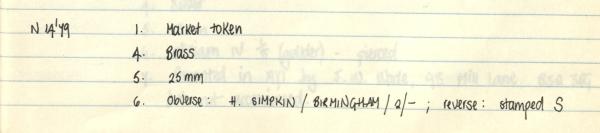 N 14'79 1. Market token
4. Brass
5. 25 mm
6. Obverse: H. SIMPKIN / BIRMINGHAM / 2/- ; reverse: stamped S